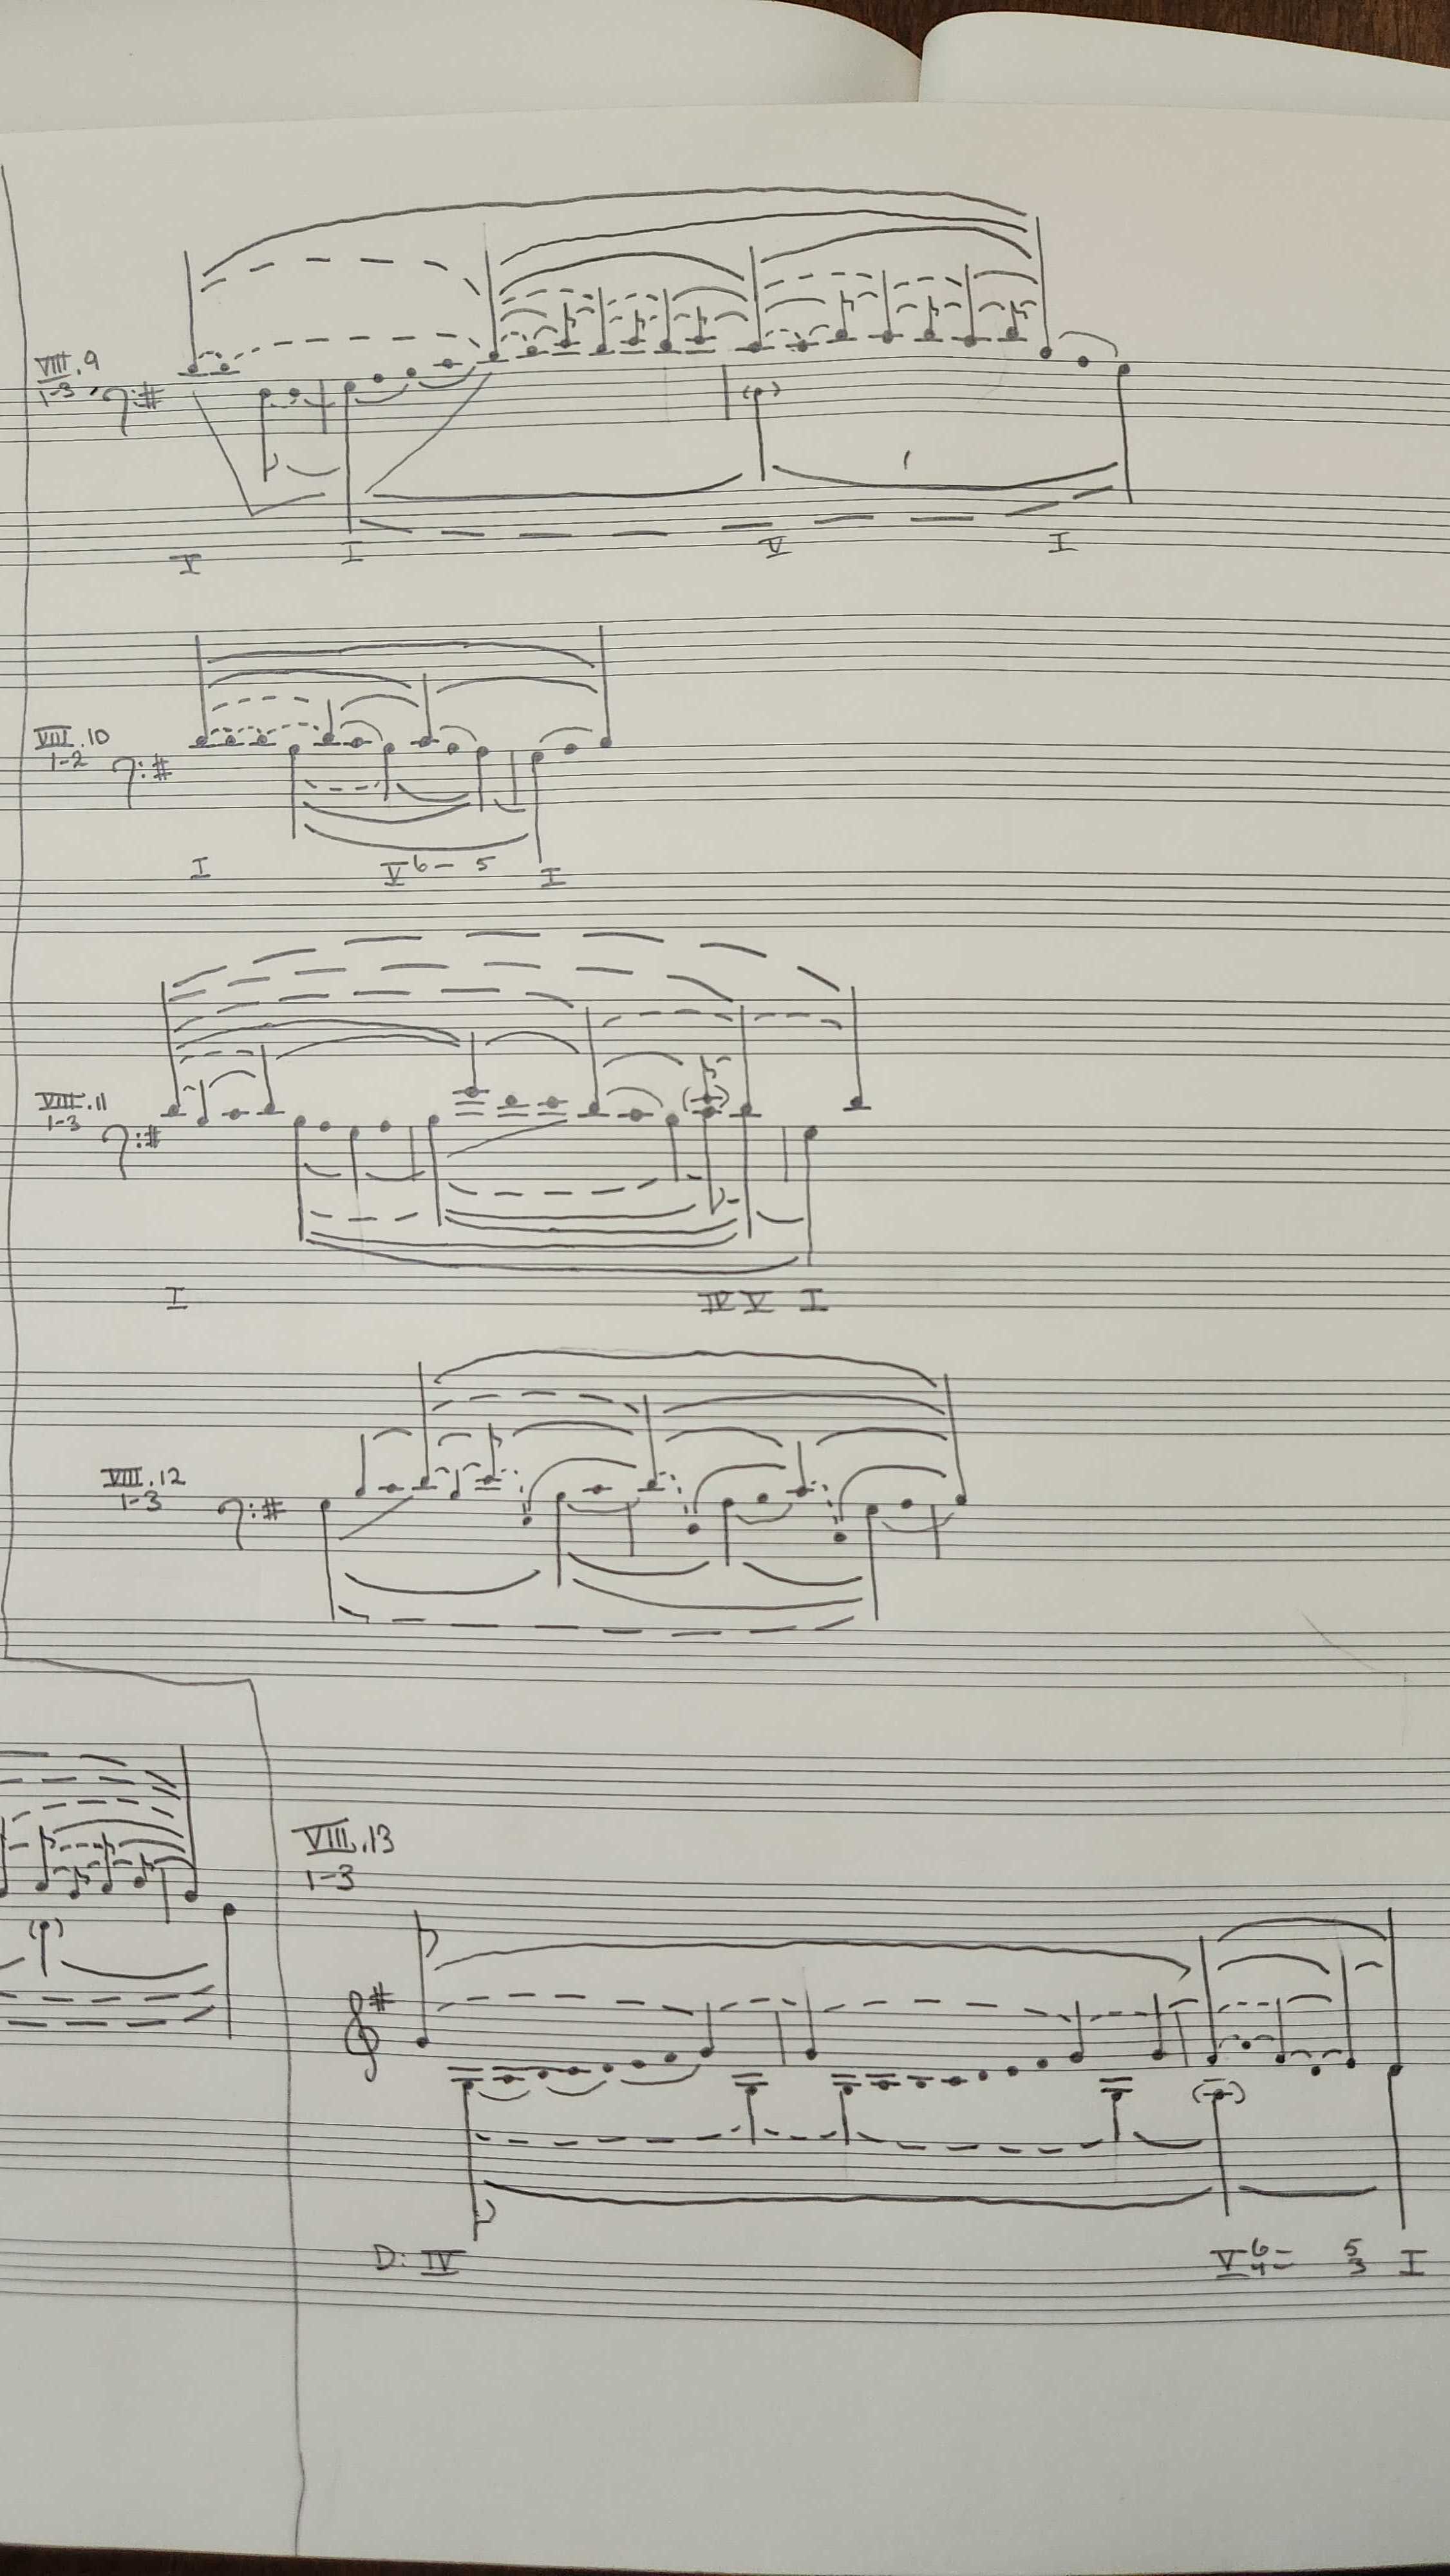 VIII.9
1-3
V I V I
VIII.10
1-2
I V 6- 5 I
VIII.11
1-3
I IV V I
VIII.12
1-3
VIII.13
1-3
D: IV V 6- 5 I
4= 3